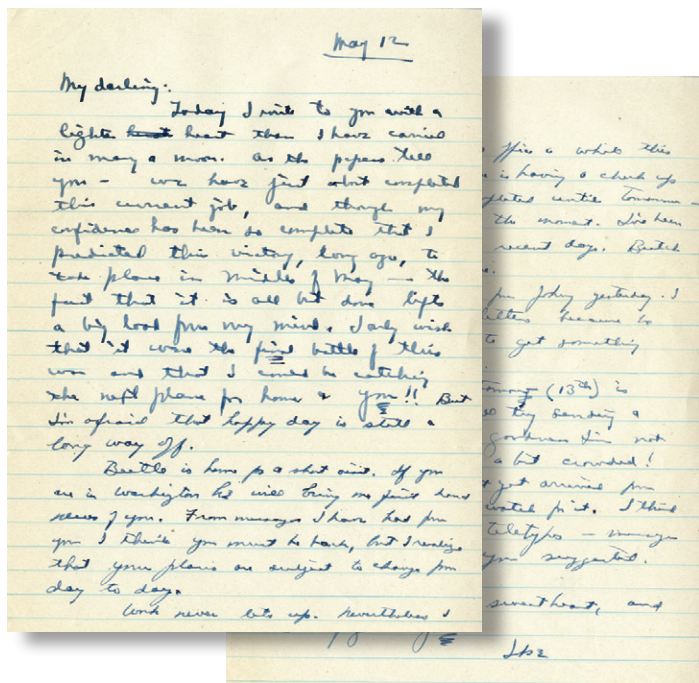 May 12
My darling:
Today I write to you with a
lighter heart than I have carried
in many a moon. As the papers tell
you - we have just about completed
this current job, and though my
confidence has been so complete that I
predicted this victory, long ago, to
take place in middle of May - the
fact that it is all but done lifts
a big load from my mind. I only wish
that it were the final battle of this
war and that I could be catching
the next plane for home & you!! But
I'm afraid that happy day is still a
long way off.
Beetle is home for a short visit. If you
are in Washington he will bring me first hand
news of you. From messages I have had from
you I think you must be back, but I realize
that your plans are subject to change from
day to day.
Work never lets up. Nevertheless I
office a while this
is having a check up
until tomorrow -
the moment. I've been
recent days. Butch
from Johnny yesterday. I
letters because he
to get something
(13th) is
try sending a
goodness I'm not
a bit crowded!
get arrived from
watch for it. I think
teletypes - messages
you suggested.
sweetheart, and
Ike